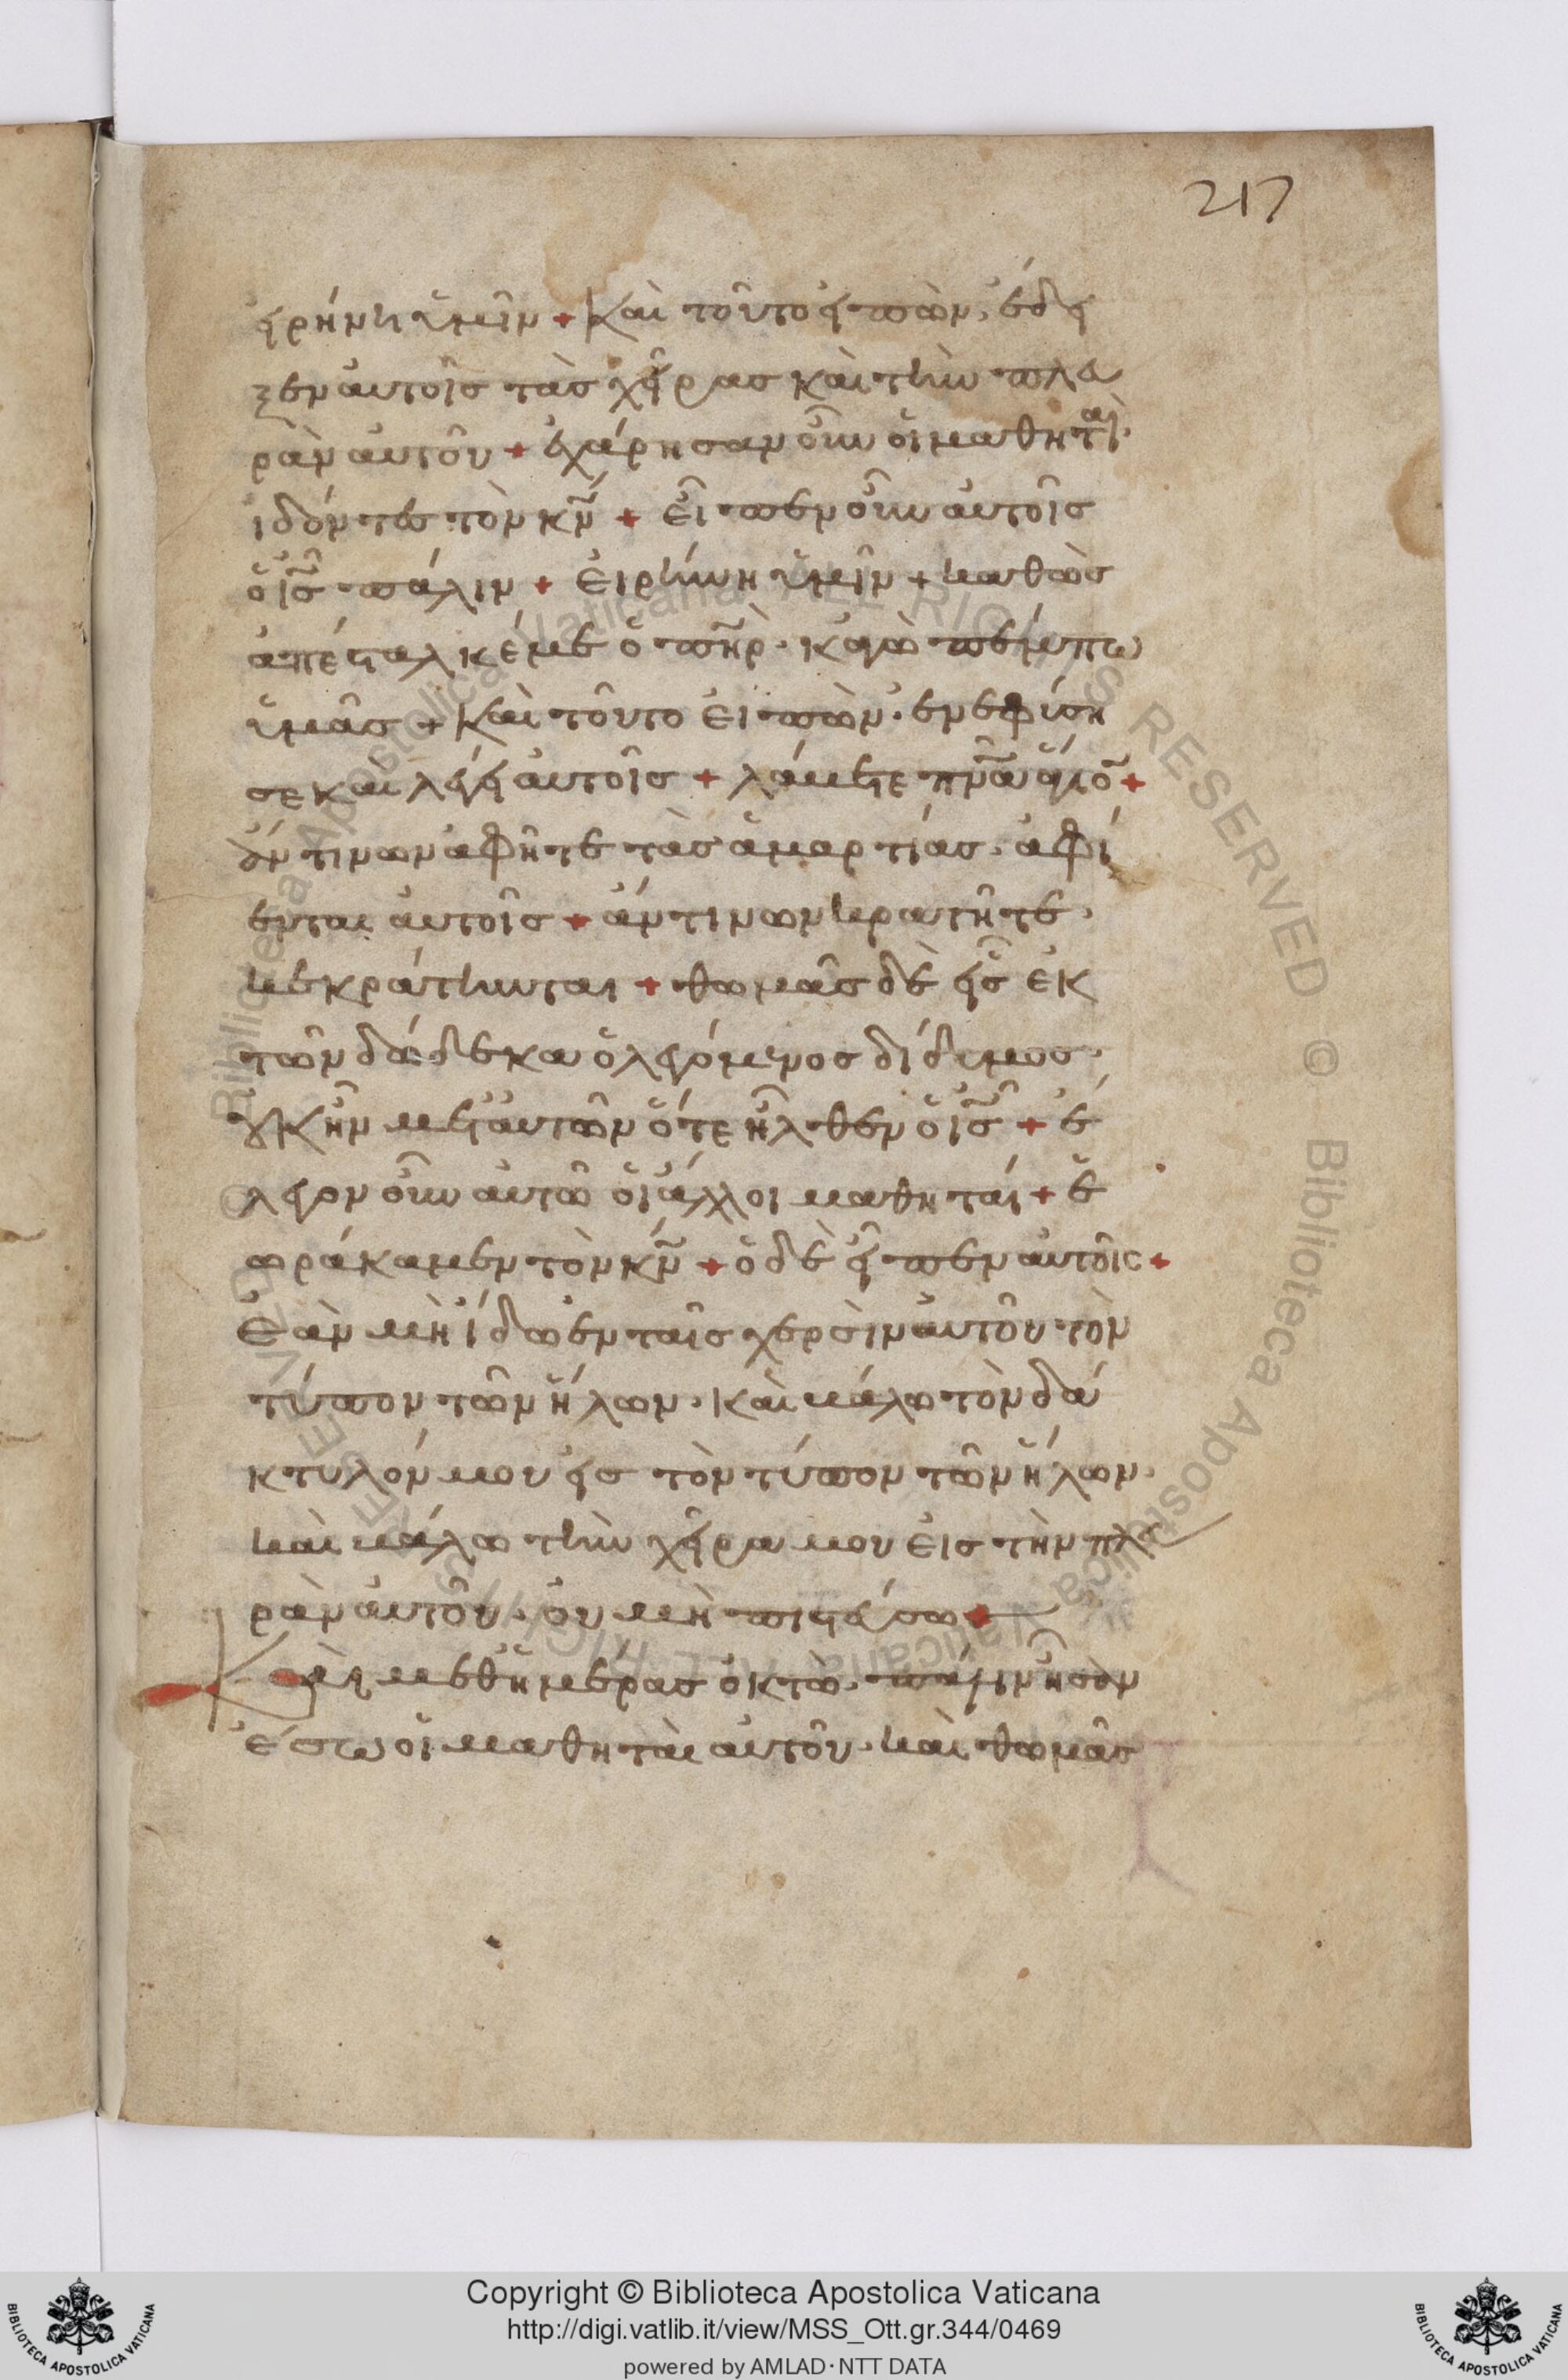 217
εἰρήνη ὑμῖν + καὶ τοῦτο εἰπὼν, ἔδει
ξεν αὐτοῖς τὰς χεῖρας καὶ τὴν πλευ
ρὰν αὐτοῦ + ἐχάρησαν οὖν οἱ μαθηταὶ·
ἰδόντες τὸν κν̄ + εἶπεν οὖν αὐτοῖς
ὁ ις̄ πάλιν + εἰρήνη ὑμῖν + καθὼς
ἀπέσταλκέ με ὁ πηρ̄· κἀγὼ πέμπω
ὑμᾶς + καὶ τοῦτο εἰπὼν· ἐνεφύση
σε καὶ λέγει αὐτοῖς + λάβετε πνᾱ ἅγιον +
ἄν τινων ἀφῆτε τὰς ἁμαρτίας· ἀφί
ενται αὐτοῖς + ἄν τινων κρατῆτε·
κεκράτηνται + θωμᾶς δὲ εἷς ἐκ
τῶν δώδεκα ὁ λεγόμενος δίδυμος·
οὐκ ἦν μετ' αὐτῶν ὅτε ἦλθεν ὁ ις̄ + ἔ
λεγον οὖν αὐτῶ οἱ ἄλλοι μαθηταί + ἑ
ωράκαμεν τὸν κν̄ + ὁ δὲ εἶπεν αὐτοῖς +
Ἐὰν μὴ ἴδω ἐν ταῖς χερσὶν αὐτοῦ τὸν
τύπον τῶν ἥλων· καὶ βάλω τὸν δά
κτυλόν μου εἰς τὸν τύπον τῶν ἥλων·
καὶ βάλω τὴν χεῖρα μου εἰς τὴν πλευ
ρὰν αὐτοῦ· οὐ μὴ πιστεύσω +
Καὶ μεθ' ἡμέρας ὀκτὼ· πάλιν ἦσαν
ἔσω οἱ μαθηταὶ αὐτοῦ· καὶ θωμᾶς
Copyright © Biblioteca Apostolica Vaticana
http://digi.vatlib.it/view/MSS_Ott.gr.344/0469
powered by AMLAD·NTT DATA
BIBLIOTECA APOSTOLICA VATICANA
BIBLIOTECA APOSTOLICA VATICANA